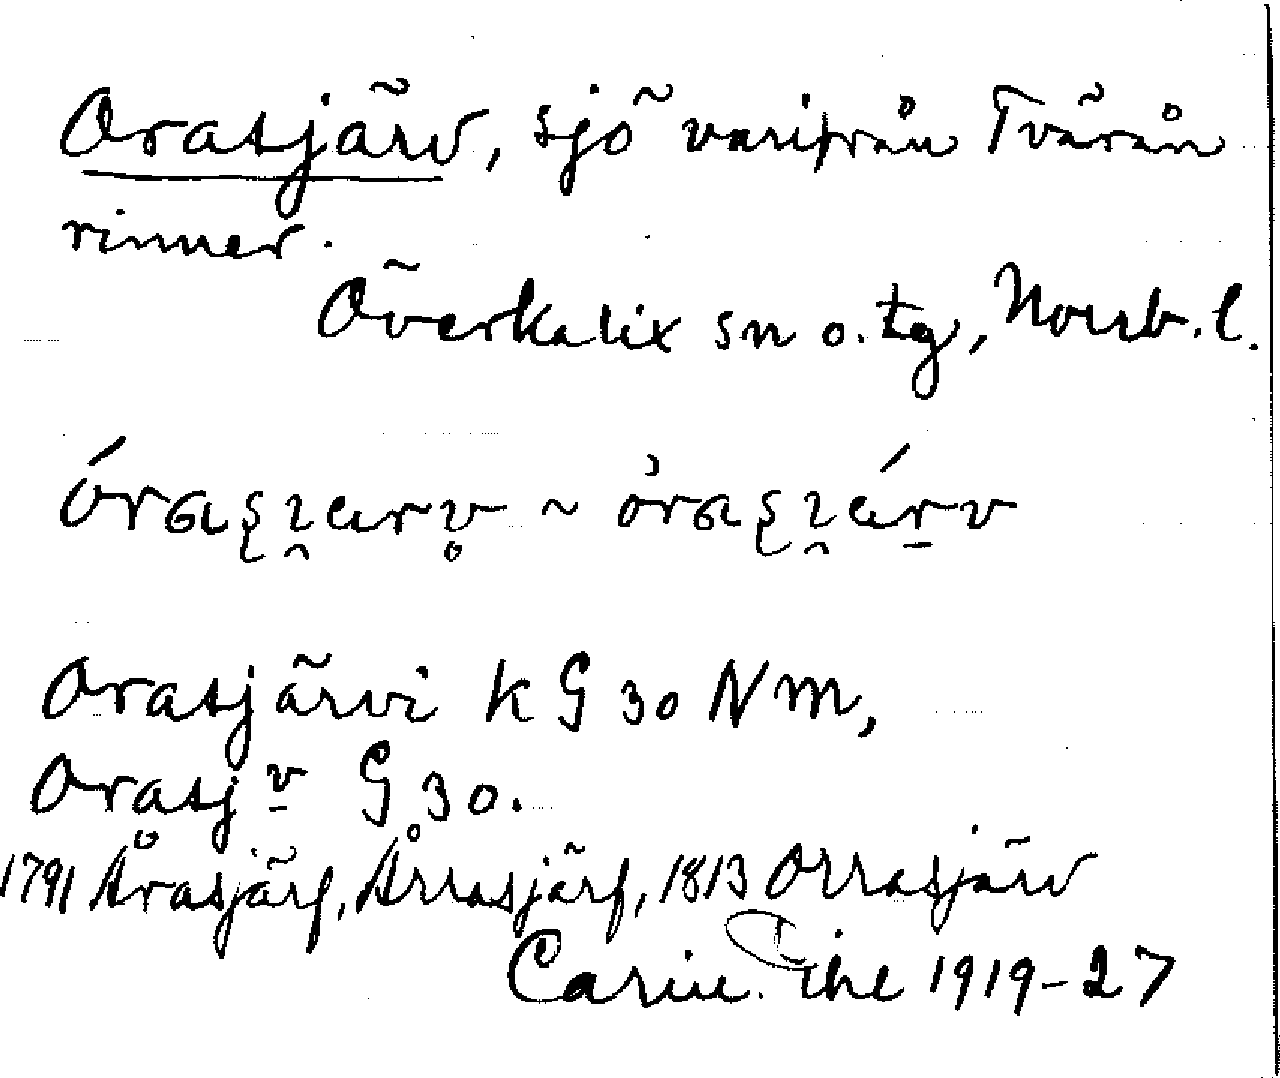 Orasjärv, sjö varifrån Tvärån
rinner.
Överkalix sn o. tg, Norrb. l.
~
Orasjärvi k G 30 N m,
Orasj v G 30.
1791 Årasjärf, Årrasjärf, 1813 Orrasjärv
Carin Pihl 1919-27